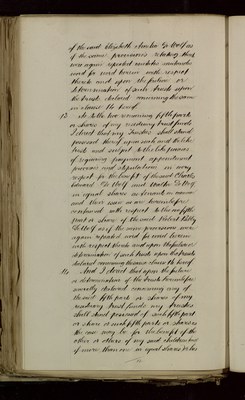 of the said Elizabeth Amelia De Wolf as
if the same provisions relating thus
were again repeated mutatis mutandis
and for and herein with respect
thereto and upon the failure or
determination of such trusts upon
the trusts declared concerning the same
in clause 16 hereof
13 As to the two remaining fifth parts
or shares of my residuary trust funds
I direct that my Trustees shall stand
possessed thereof upon such and the like
trusts and subject to the like powers
of regaining payment appointment
provisions and stipulations in every
respect for the benefit of the said Charles
Edward De Wolf and Walter De Wolf
in equal shares as tenants in common
and their issue as are hereinbefore
contained with respect to the one fifth
part or share of the said Robert
De Wolf as if the same provisions were
again repeated and for and herein
with respect thereto and upon the failure
determination of such trusts upon the trusts
declared concerning the same clause 16 hereof
And I direct that upon the failure
or determination of the trusts hereinbefore
severally declared concerning any of
the said fifth parts or shares of my
residuary trust funds my Trustees
shall stand possessed of such fifth part
or share or such fifth parts or shares as
the case may be for the benefit of the
other or others of my said children and
if more than one in equal shares to be